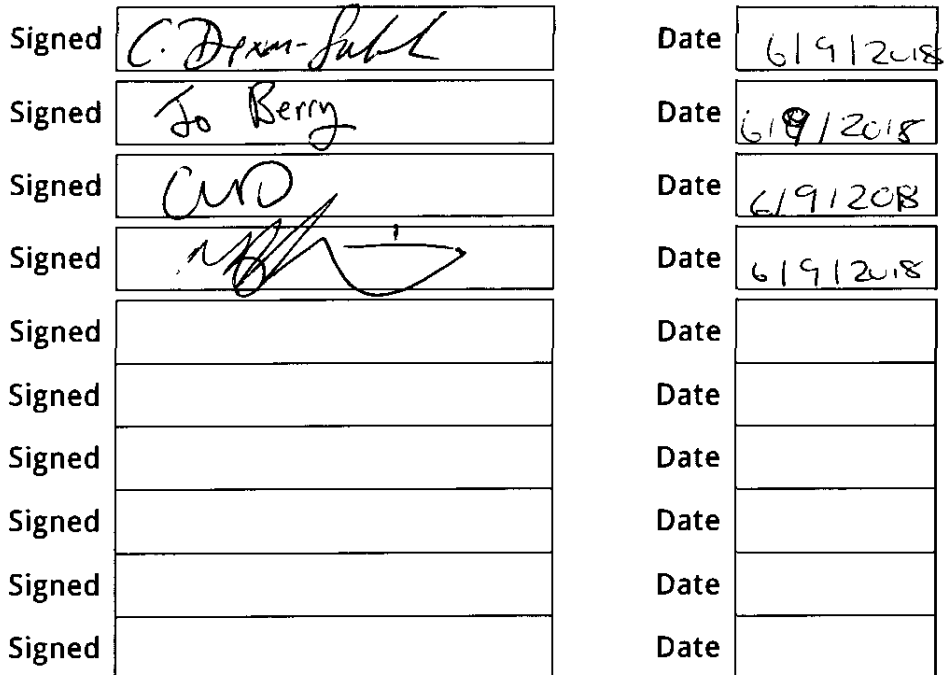 Signed C. Date 6/9/2018
Signed Jo Berry Date 6/9/2018
Signed Date 6/9/2018
Signed Date 6/9/2018
Signed Date
Signed Date
Signed Date
Signed Date
Signed Date
Signed Date